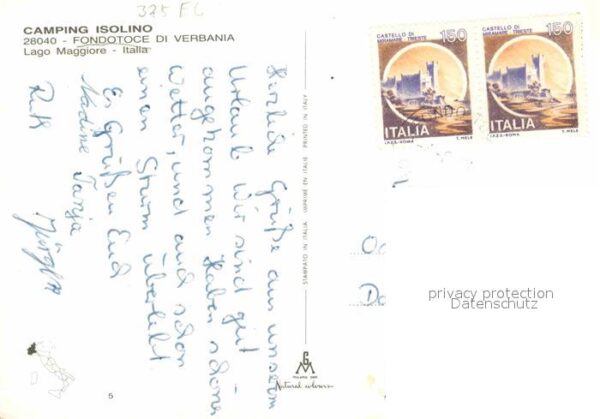 325 FC
CAMPING ISOLINO
28040 - FONDOTOCE DI VERBANIA
Lago Maggiore - Italia
Herzliche Grüße aus unserem
Urlaub. Wir sind gut
angekommen haben schönes
Wetter, und auch schon
einen Sturm überlebt
Es Grüßen Euch
Nadine Tanja
STAMPATO IN ITALIA - IMPRIMÉ EN ITALIE - PRINTED IN ITALY
Natural colours
5
CASTELLO DI
MIRAMARE TRIESTE
150
ITALIA
I.P.Z.S.-ROMA
T. MELE
CASTELLO DI
MIRAMARE TRIESTE
150
ITALIA
I.P.Z.S.-ROMA
T. MELE
privacy protection
Datenschutz